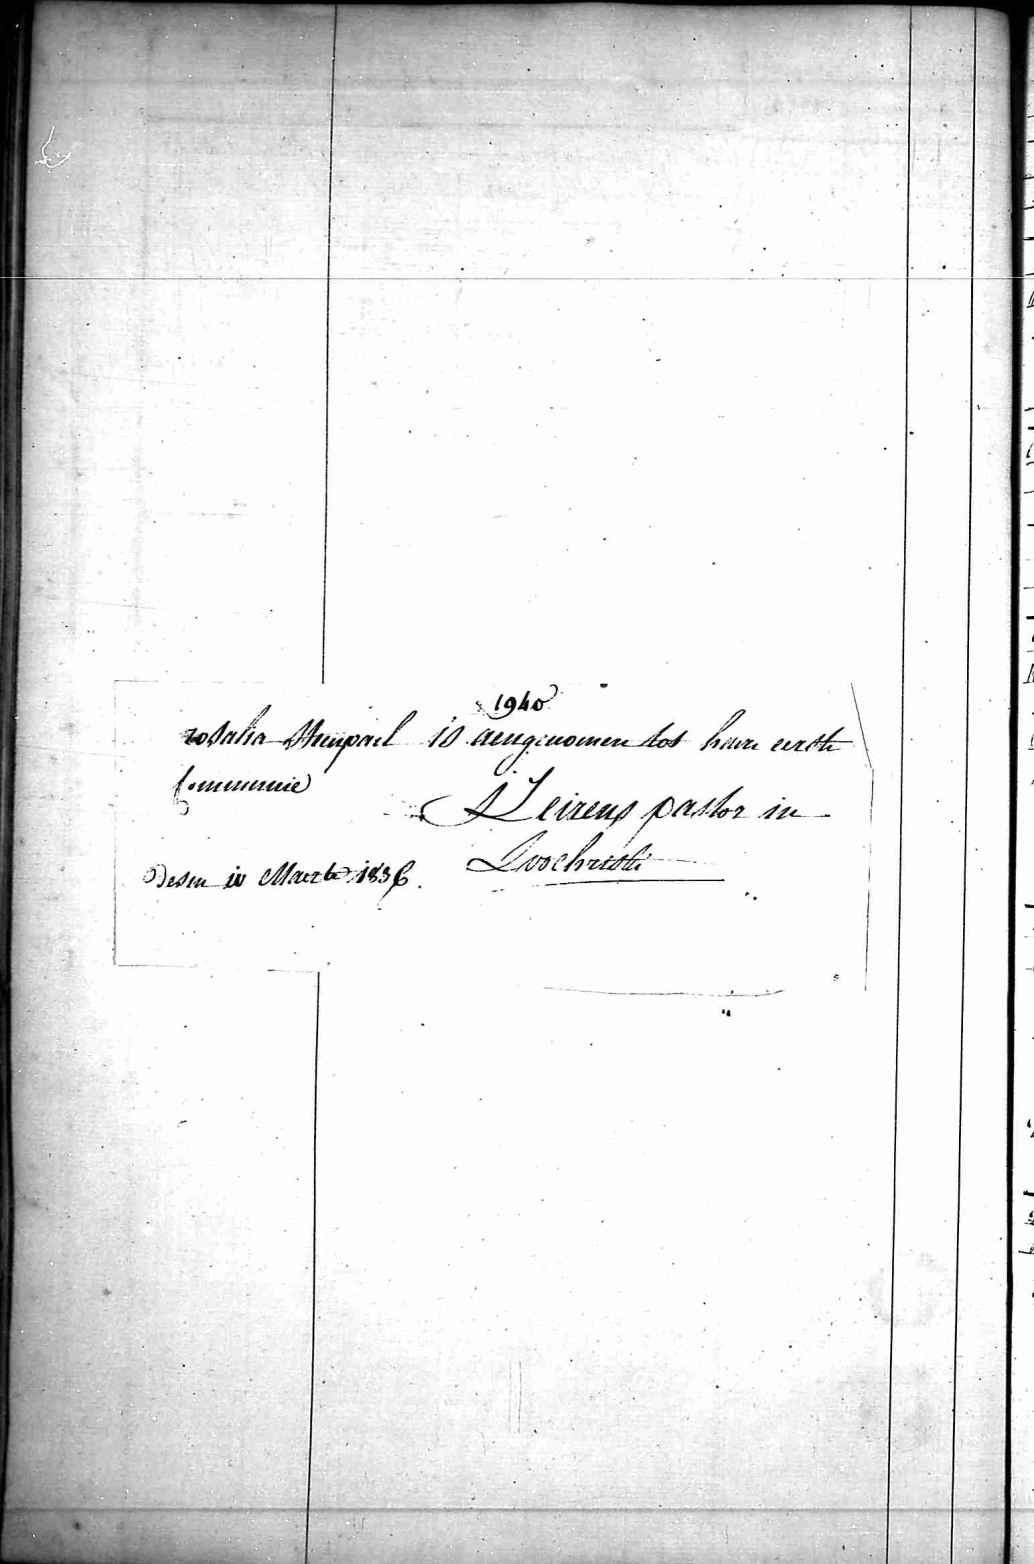 1940
rosalia Steupael is aengenomen tot haere eerste
Communie
Leirens pastor in
Loochristi
Desen 10 Maerte 1836.